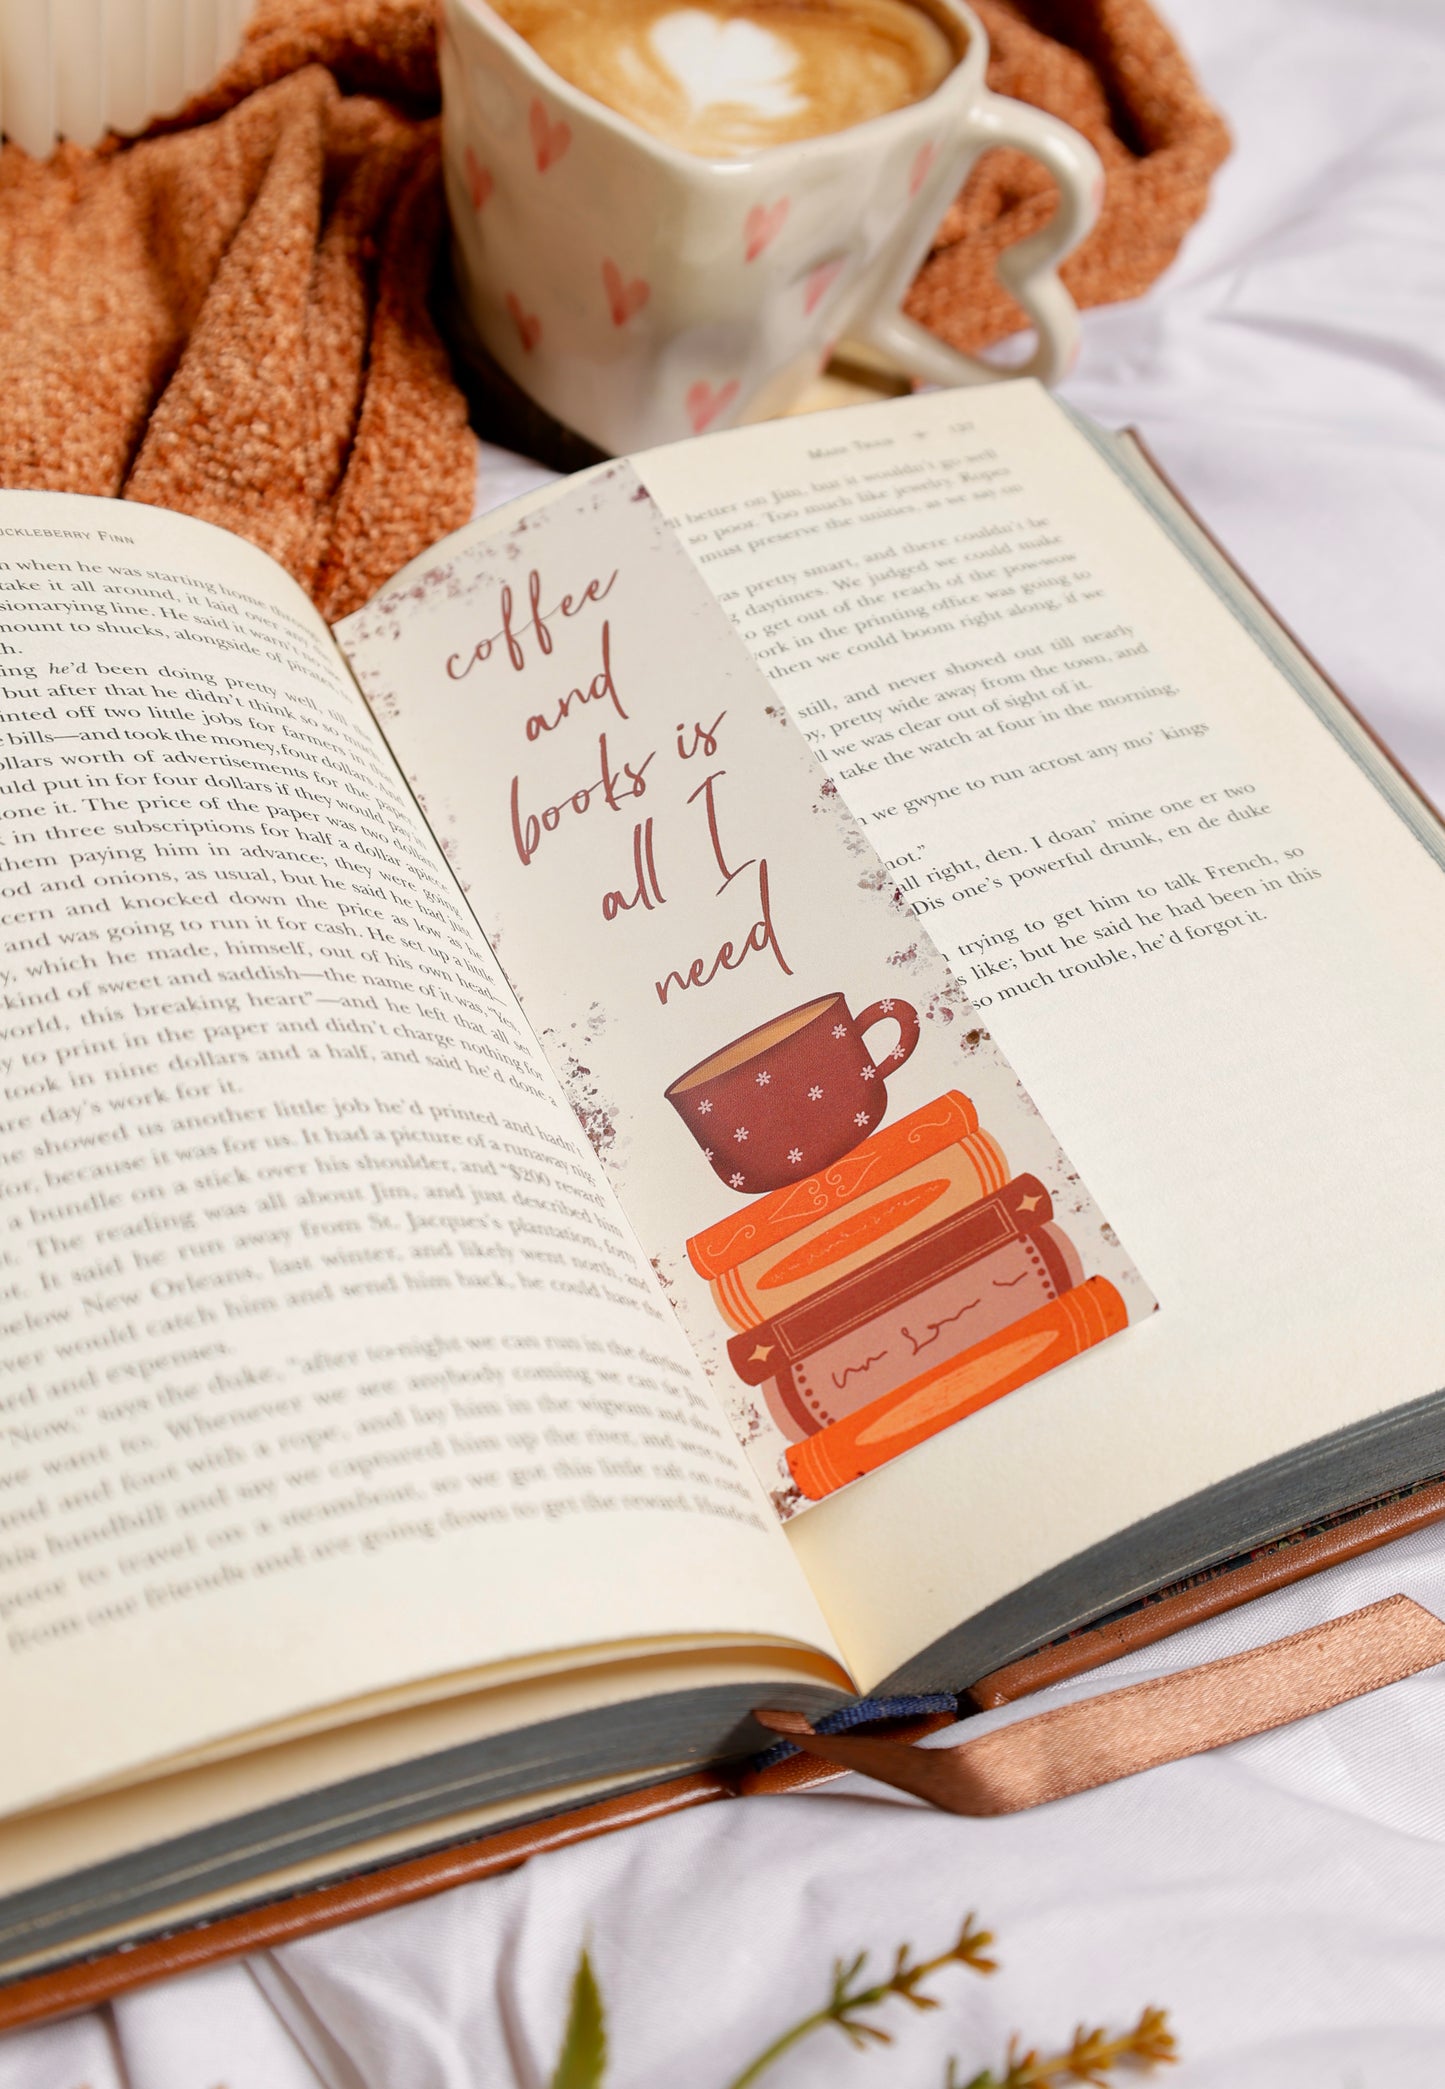 UCKLEBERRY FINN
n when he was starting home through
take it all around, it laid over any
sionarying line. He said it warn't no use
mount to shucks, alongside of pirates,
h.
ing he'd been doing pretty well, till
but after that he didn't think so so much
inted off two little jobs for farmers in that
e bills—and took the money, four dollars. And
ollars worth of advertisements for the paper,
uld put in for four dollars if they would pay in
one it. The price of the paper was two dollars
k in three subscriptions for half a dollar apiece
them paying him in advance; they were going
od and onions, as usual, but he said he had just
cern and knocked down the price as low as he
and was going to run it for cash. He set up a little
y, which he made, himself, out of his own head—
kind of sweet and saddish—the name of it was, "Yes,
world, this breaking heart"—and he left that all set
y to print in the paper and didn't charge nothing for
took in nine dollars and a half, and said he'd done a
are day's work for it.
he showed us another little job he'd printed and hadn't
for, because it was for us. It had a picture of a runaway nig-
a bundle on a stick over his shoulder, and "$200 reward"
t. The reading was all about Jim, and just described him
ot. It said he run away from St. Jacques's plantation, forty
below New Orleans, last winter, and likely went north, and
ever would catch him and send him back, he could have the
ard and expenses.
"Now," says the duke, "after to-night we can run in the daytime
we want to. Whenever we see anybody coming we can tie Jim
and foot with a rope, and lay him in the wigwam and show
his handbill and say we captured him up the river, and were too
poor to travel on a steamboat, so we got this little raft on credit
from our friends and are going down to get the reward. Handcuffs
coffee
and
books is
all I
need
MARK TWAIN
ll better on Jim, but it wouldn't go well
so poor. Too much like jewelry. Ropes
must preserve the unities, as we say on
as pretty smart, and there couldn't be
g daytimes. We judged we could make
o get out of the reach of the pow-wow
work in the printing office was going to
then we could boom right along, if we
still, and never shoved out till nearly
by, pretty wide away from the town, and
ll we was clear out of sight of it.
take the watch at four in the morning,
we gwyne to run acrost any mo' kings
not."
all right, den. I doan' mine one er two
Dis one's powerful drunk, en de duke
trying to get him to talk French, so
s like; but he said he had been in this
so much trouble, he'd forgot it.